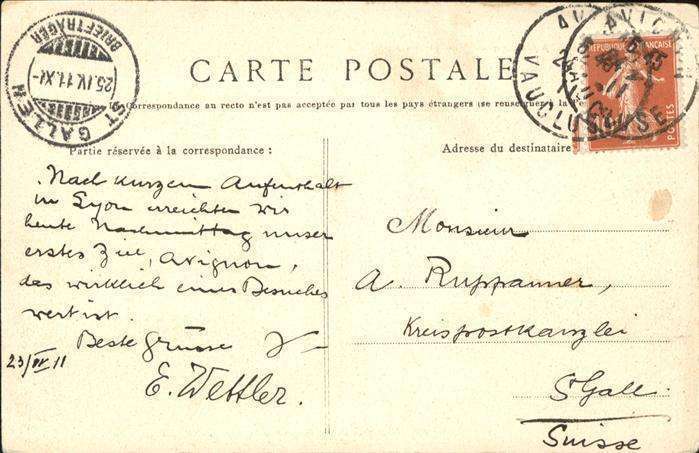 CARTE POSTALE
La Correspondance au recto n'est pas acceptée par tous les pays étrangers (se renseigner à la
Partie réservée à la correspondance :
Nach kurzem Aufenthalt
in Lyon erreichten wir
heute Nachmittag unser
erstes Ziel, Avignon,
das wirklich eines Besuches
wert ist.
Beste Grüsse
23/IV 11
E. Wettler.
Adresse du destinataire
Monsieur
A. Ruppanner,
Kreispostkanzlei
St Gall.
Suisse
ST. GALLEN
25.IV.11.XI-
BRIEFTRÄGER
AVIGNON
VAUCLUSE
REPUBLIQUE FRANÇAISE
POSTES